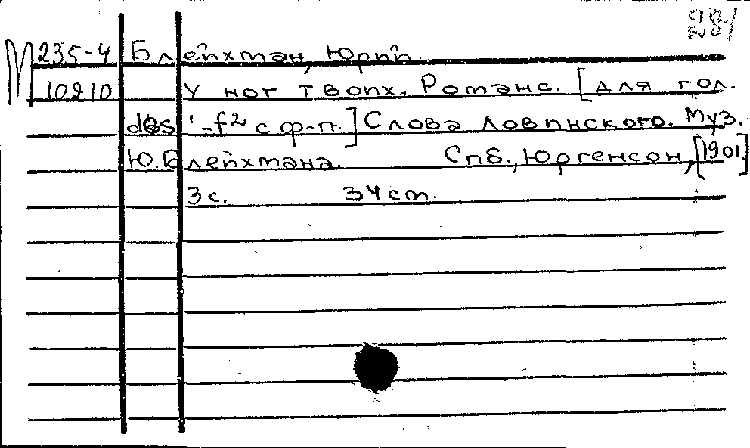 М 235-4 Блейхман, Юрий
10210 У ног твоих. Романс. [для гол.
des'-f2 с ф-п.] Слова Ловинского. Муз.
Ю. Блейхмана. Спб., Юргенсон, [1901]
3 с. 34 cm.